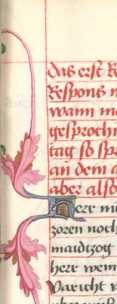 das erst R
Respons n
wann m
gesprochn
tag so spr
an dem a
aber also
Herr nu
zoren noch
maidtzog
herr wenn